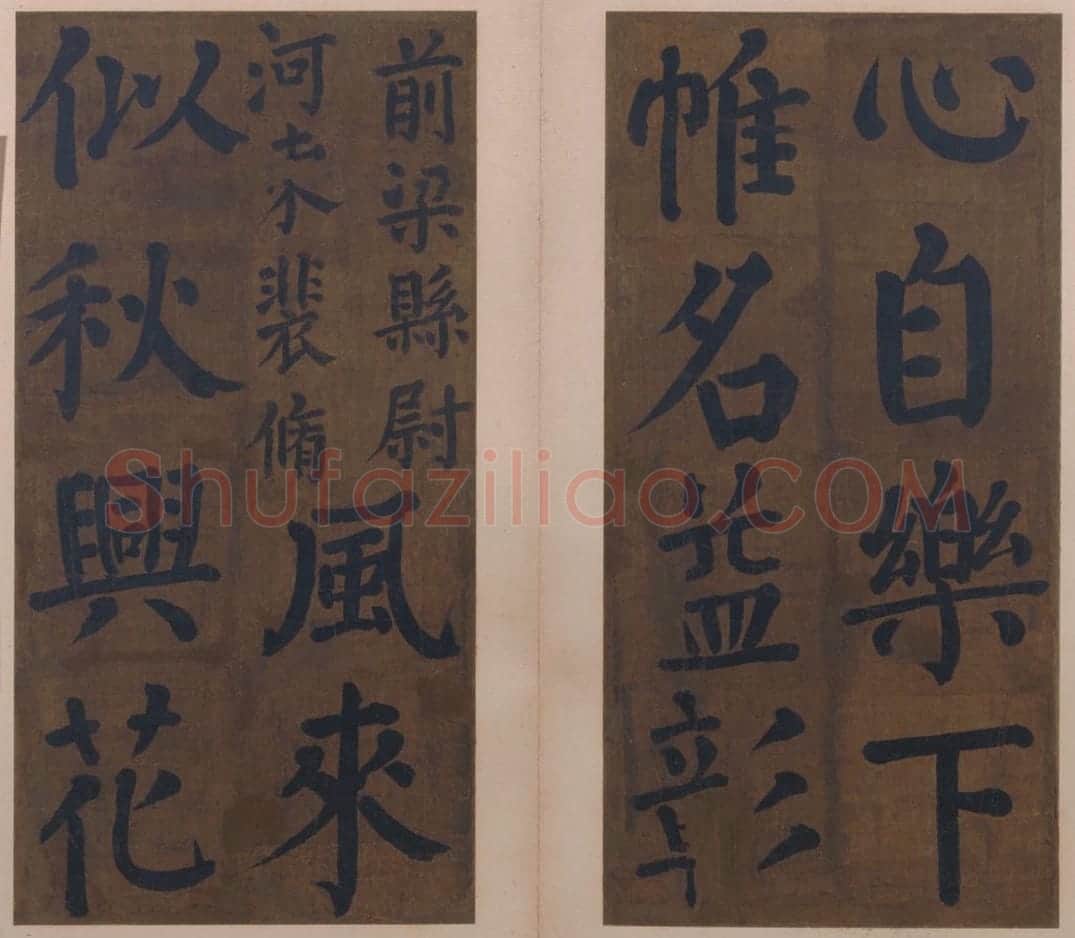 心自樂下
帷名益彰
前梁縣尉
河裴脩
風來
似秋興花
Shufaziliao.COM